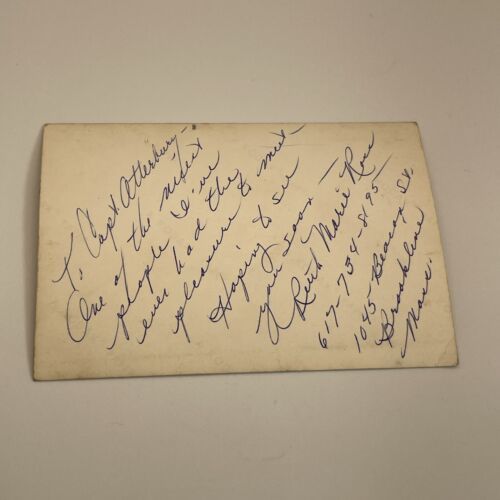 To Capt Atterbury -
One of the nicest
people I've
ever had the
pleasure to meet -
Hoping to see
you soon -
Ruth Marie Ross
617-734-8195
1045 Beacon St.
Brookline
Mass.